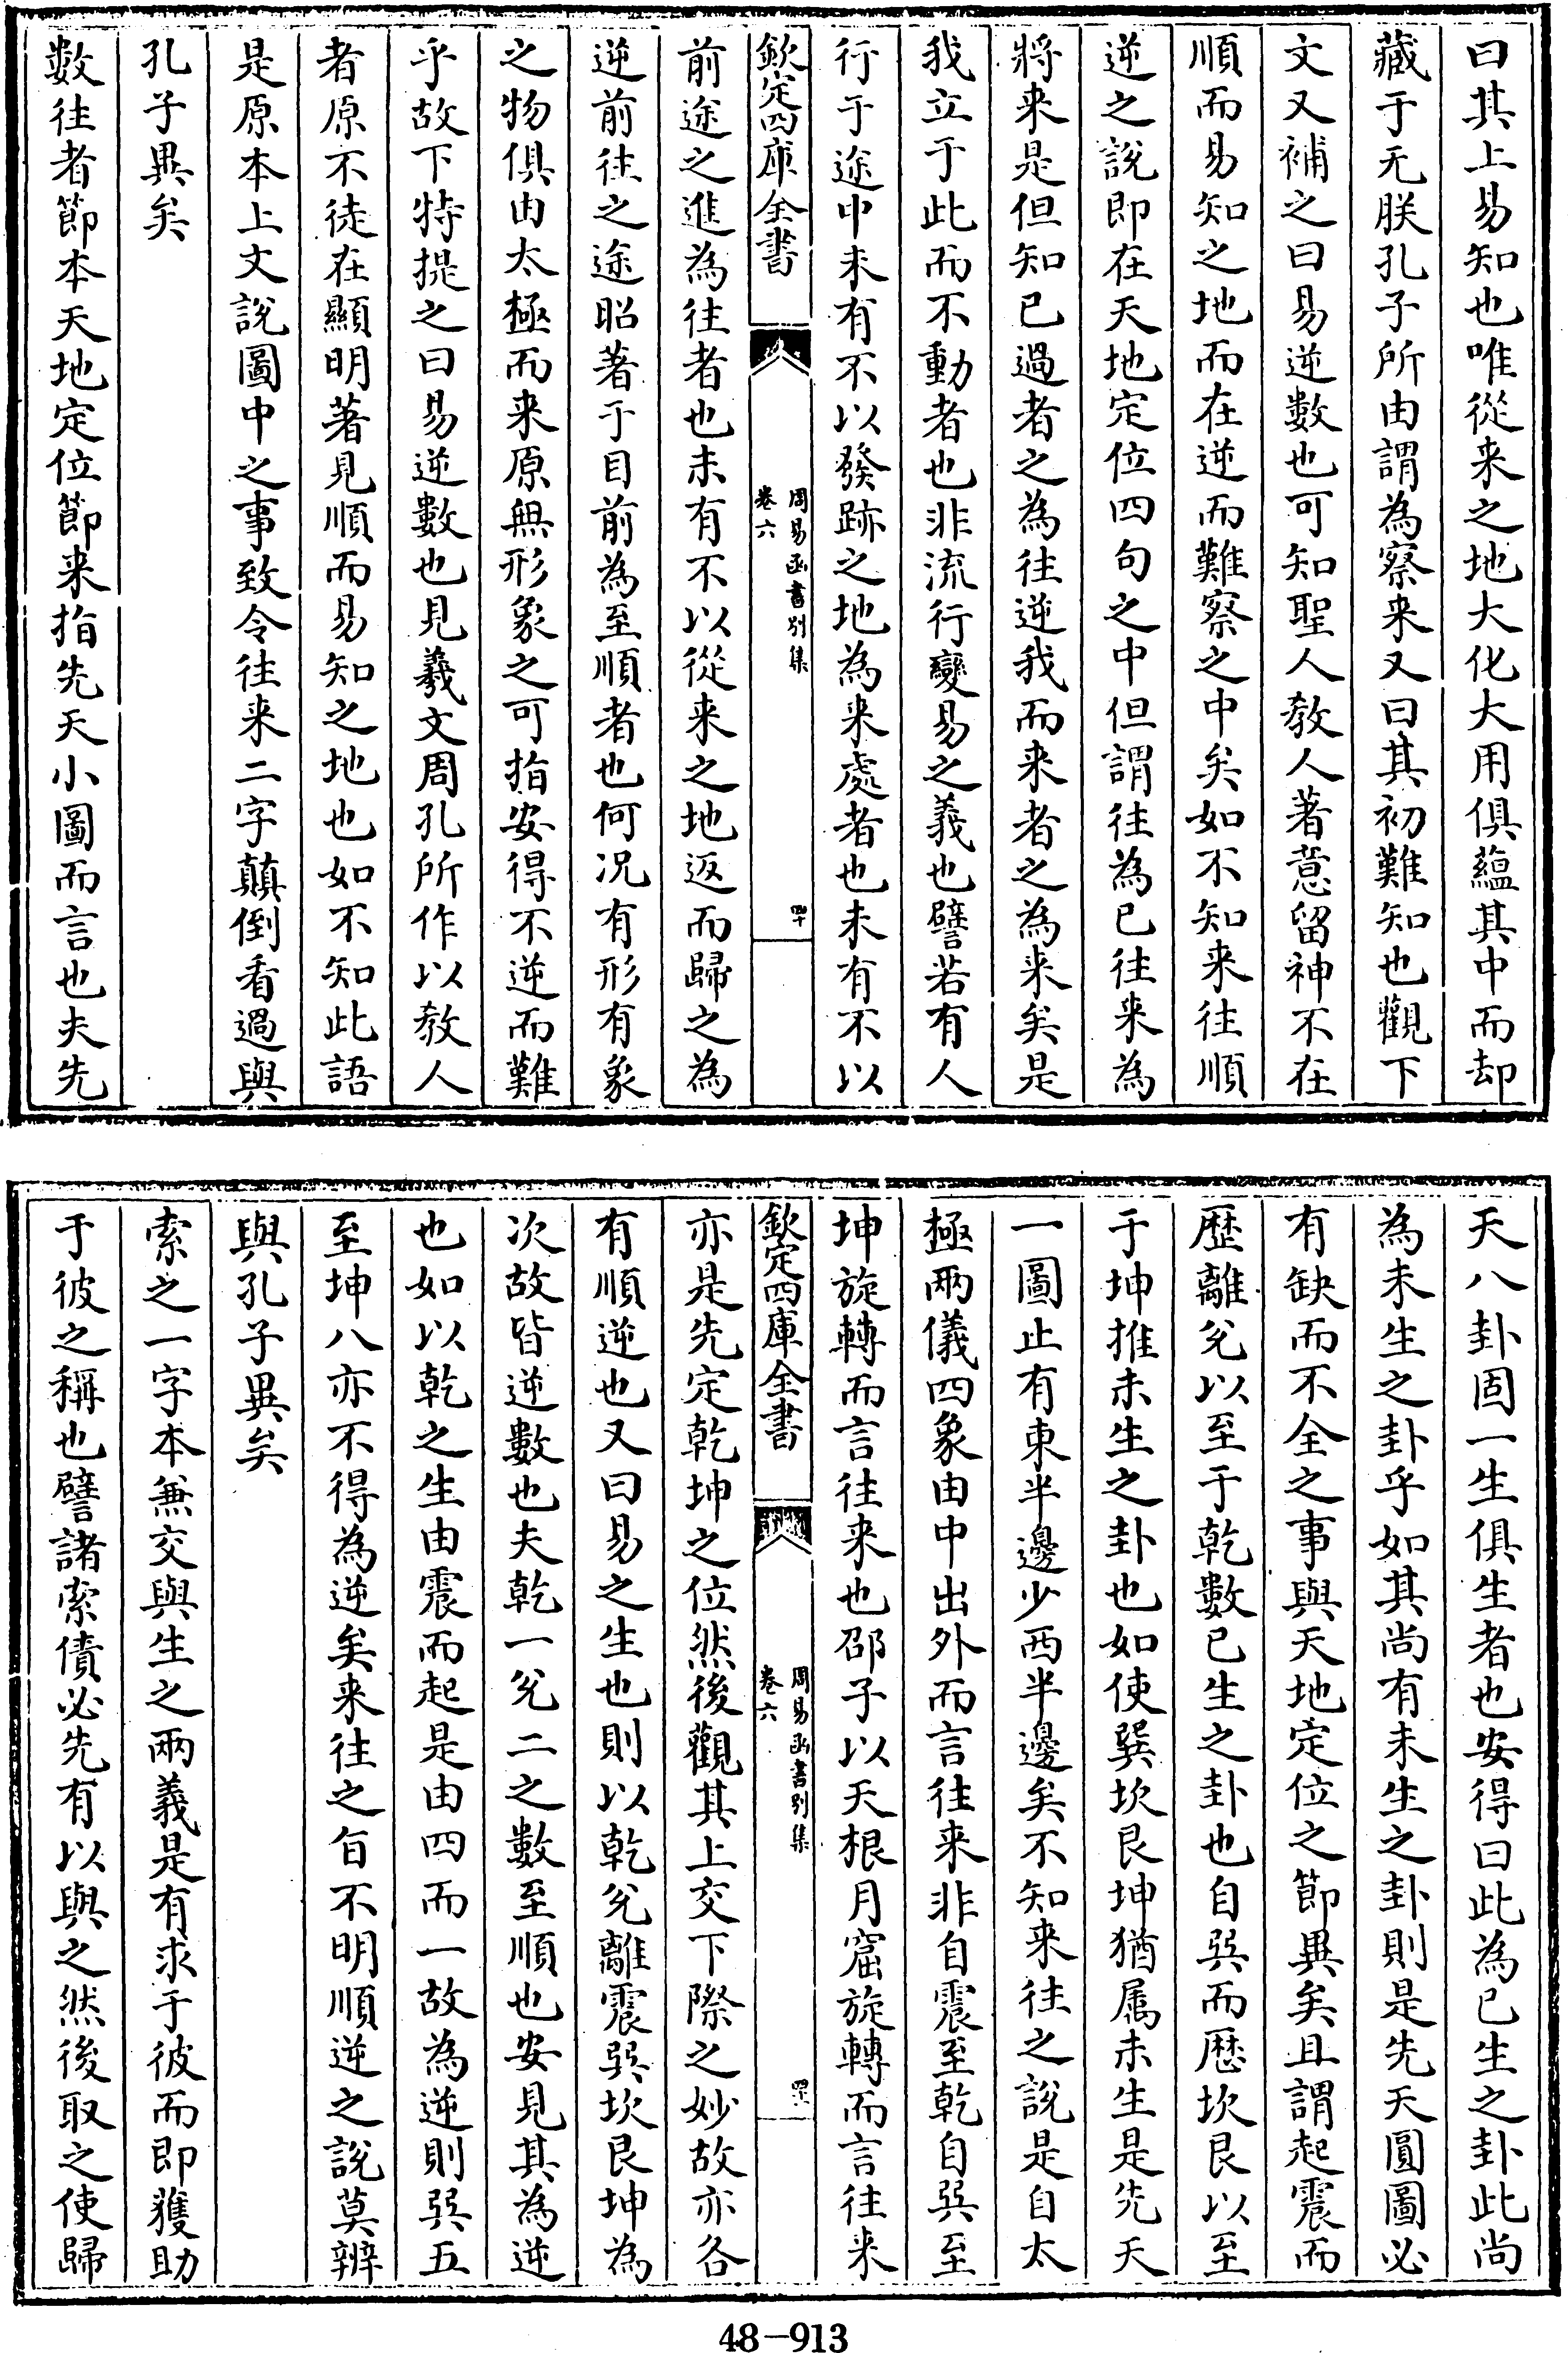 曰其上易知也唯從来之地大化大用俱蘊其中而却
藏于无朕孔子所由謂為察来又曰其初難知也觀下
文又補之曰易逆數也可知聖人教人著意留神不在
順而易知之地而在逆而難察之中矣如不知来往順
逆之說即在天地定位四句之中但謂往為已往来為
將来是但知已過者之為往逆我而来者之為来矣是
我立于此而不動者也非流行變易之義也譬若有人
行于途中未有不以發跡之地為来處者也未有不以
欽定四庫全書
周易函書別集
卷六
四十
前途之進為往者也未有不以從来之地返而歸之為
逆前往之途昭著于目前為至順者也何况有形有象
之物俱由太極而来原無形象之可指安得不逆而難
乎故下特提之曰易逆數也見羲文周孔所作以教人
者原不徒在顯明著見順而易知之地也如不知此語
是原本上文說圖中之事致令往来二字顛倒看過與
孔子異矣
數往者節本天地定位節来指先天小圖而言也夫先
天八卦固一生俱生者也安得曰此為已生之卦此尚
為未生之卦乎如其尚有未生之卦則是先天圓圖必
有缺而不全之事與天地定位之節異矣且謂起震而
歷離兌以至于乾數已生之卦也自巽而歷坎艮以至
于坤推未生之卦也如使巽坎艮坤猶属未生是先天
一圖止有東半邊少西半邊矣不知来往之說是自太
極兩儀四象由中出外而言往来非自震至乾自巽至
坤旋轉而言往来也邵子以天根月窟旋轉而言往来
欽定四庫全書
周易函書別集
卷六
亦是先定乾坤之位然後觀其上交下際之妙故亦各
有順逆也又曰易之生也則以乾兌離震巽坎艮坤為
次故皆逆數也夫乾一兌二之數至順也安見其為逆
也如以乾之生由震而起是由四而一故為逆則巽五
至坤八亦不得為逆矣来往之旨不明順逆之說莫辨
與孔子異矣
索之一字本兼交與生之兩義是有求于彼而即獲助
于彼之稱也譬諸索債必先有以與之然後取之使歸
48-913